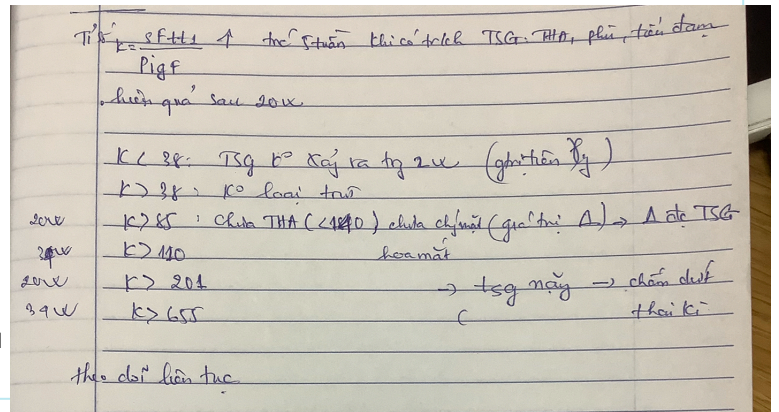 Tỉ số K = sFlt1 / PlGF ↑ trước 5 tuần khi có t/ch TSG: THA, phù, tiểu đạm
. hiệu quả sau 20w
K < 38: TSG k° xảy ra tg 2w (giá trị tiên lg)
K > 38: k° loại trừ
20w K > 85: chưa THA (<140) chưa chóng mặt (giá trị Δ) → Δ TSG
34w K > 110 hoa mắt
20w K > 201 → tsg nặng → chấm dứt
34w K > 655 ( thai kì
theo dõi liên tục